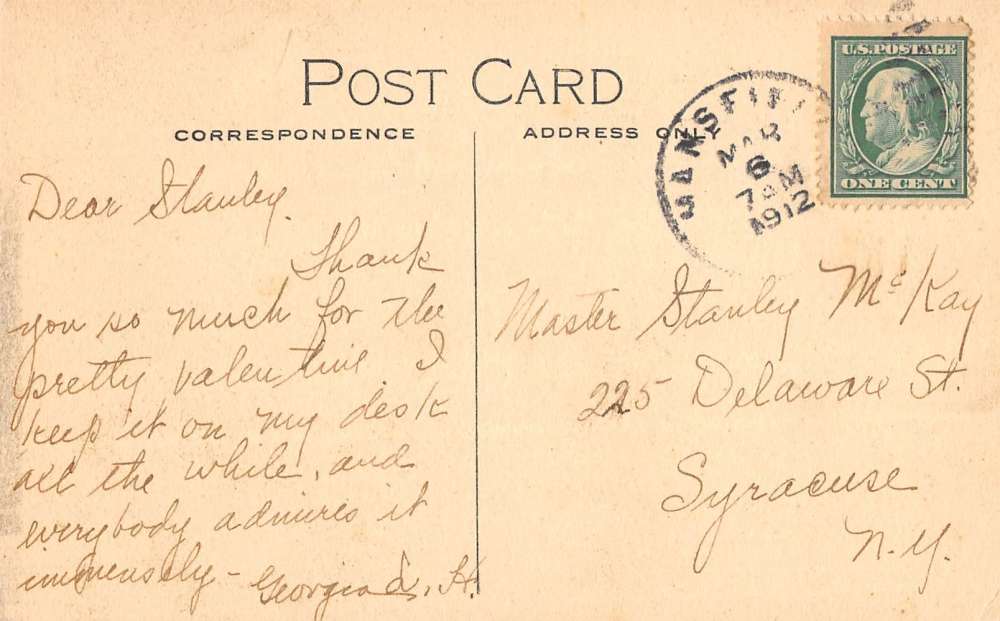 POST CARD
CORRESPONDENCE
ADDRESS ONLY
U.S. POSTAGE
ONE CENT
MANSFI
MAR
6
7 AM
1912
Dear Stanley.
Thank
you so much for the
pretty valentine I
keep it on my desk
all the while, and
everybody admires it
immensely - Georgia L. H.
Master Stanley McKay
225 Delaware St.
Syracuse
N.Y.